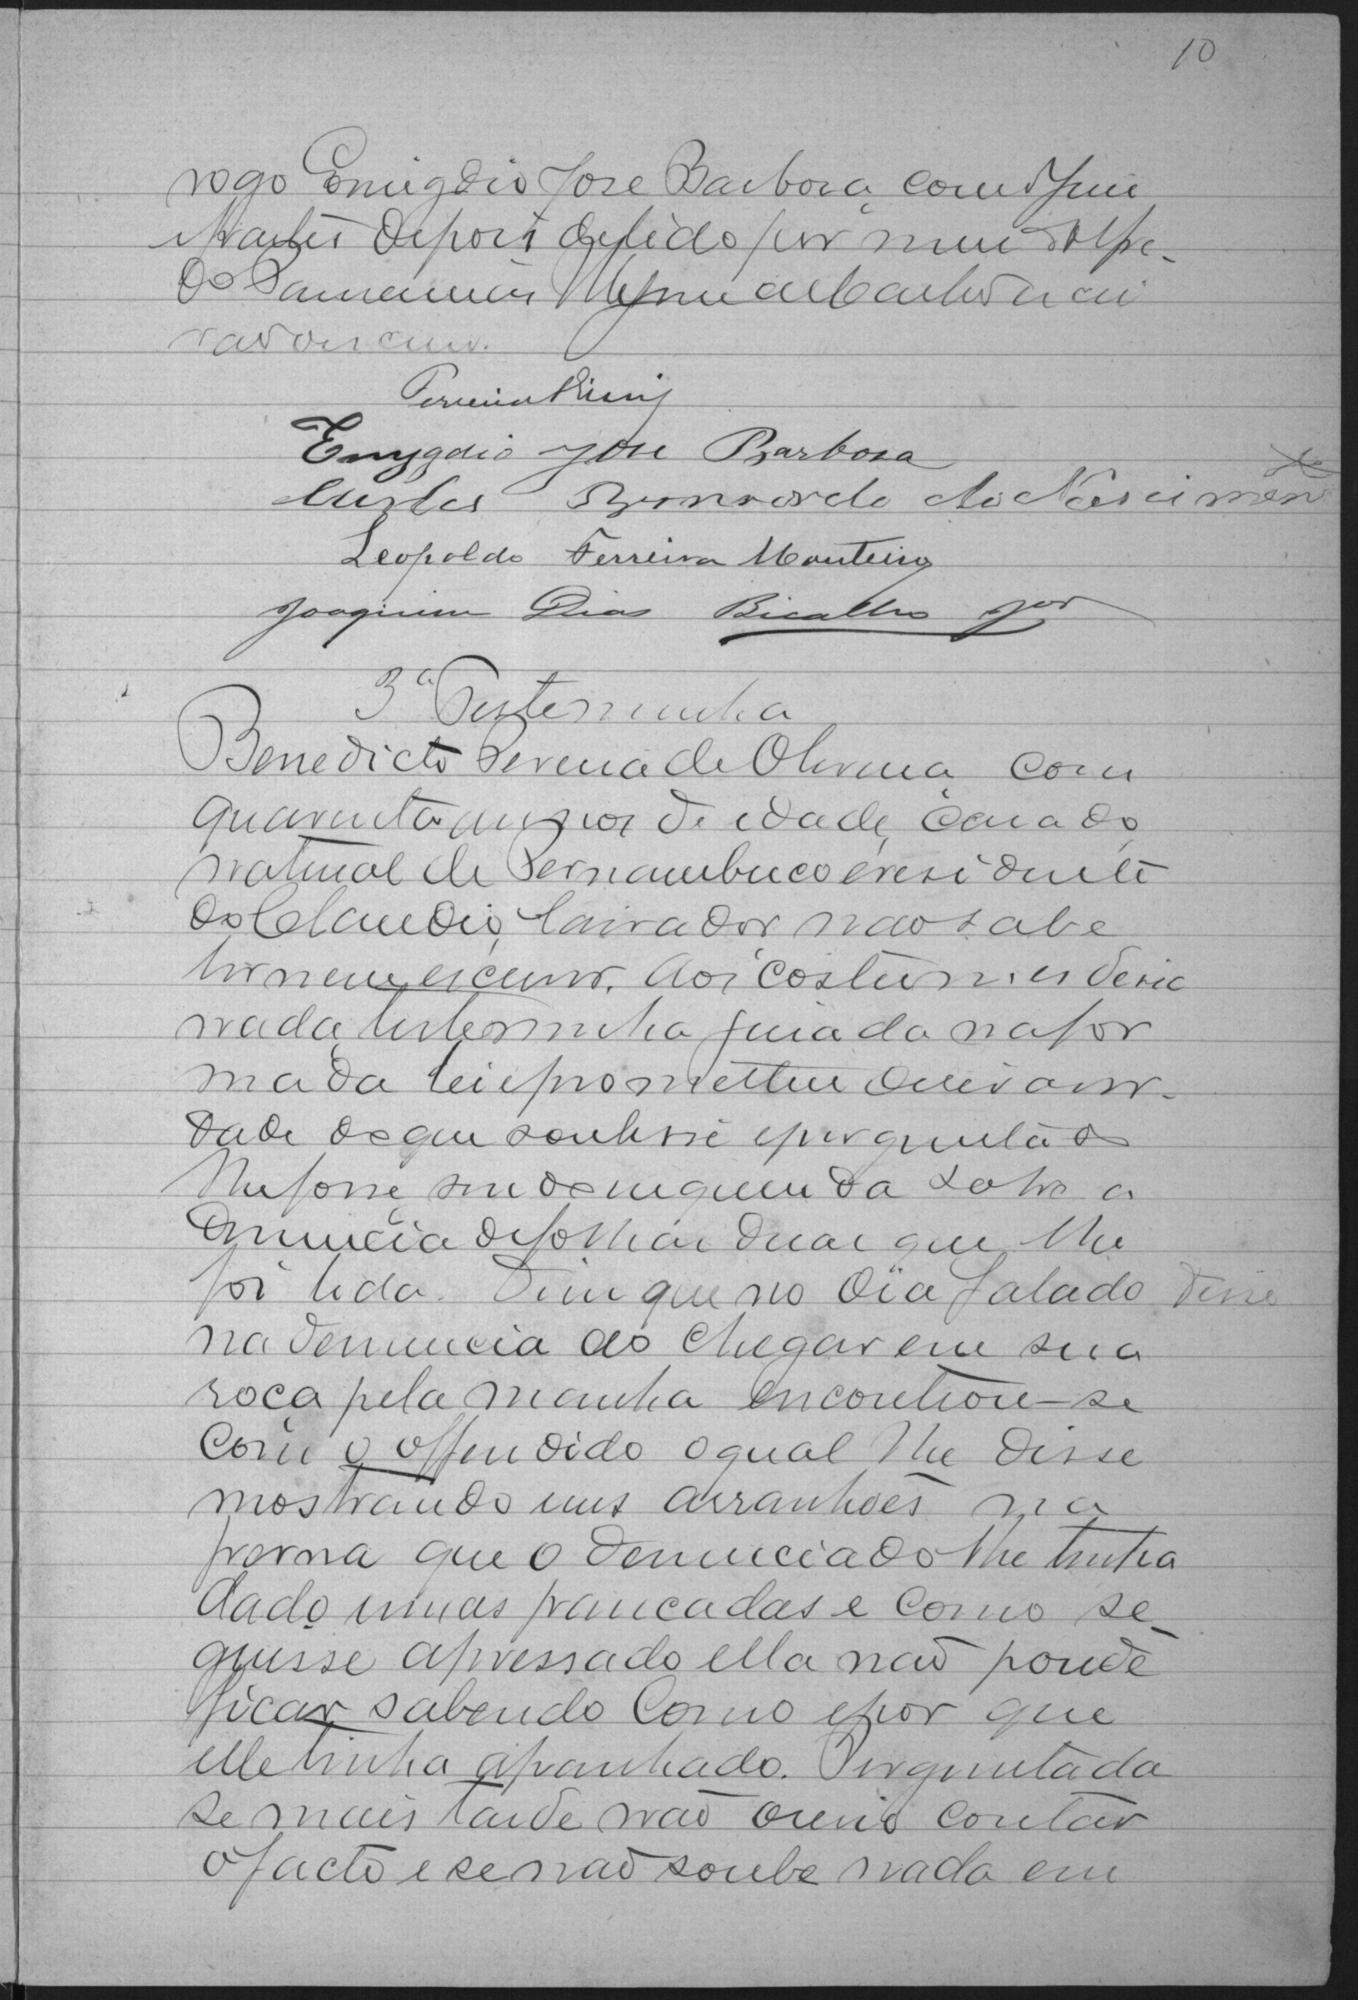 10
rogo Emigdio Jose Barbosa, com o Juiz
e partes depois de lido por mim
escrevi.
Emygdio Jose Barbosa
Carlos Bernardo do Nascimento
Leopoldo Ferreira Monteiro
Joaquim Dias Bicalho Jor
3a Testemunha
Benedicto Pereira de Oliveira, com
quarenta annos de idade, casado,
natural de Pernambuco e residente
do Claudio, lavrador não sabe
ler nem escrever. Aos costumes disse
nada, testemunha jurada na for
ma da lei e prometteu dizer a ver-
dade do que soubesse e perguntado
lhe fosse, sendo inquerida sobre a
denuncia de folhas duas que lhe
foi lida. Disse que no dia falado disse
na denuncia ao chegar em sua
roça pela manha encontrou-se
com o offendido o qual lhe disse
mostrando uns arranhões na
perna que o denunciado lhe tinha
dado umas pancadas e como se-
guisse apressado ella não poude
ficar sabendo como e por que
elle tinha apanhado. Perguntada
se mais tarde não ouvio contar
o facto e se não soube nada em